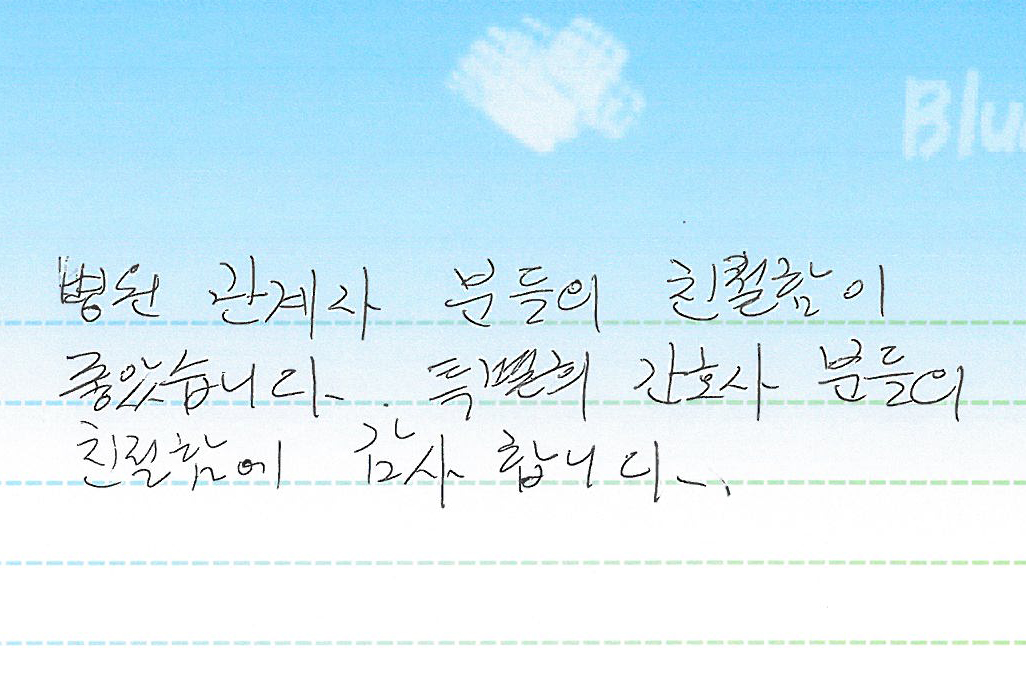 Blu
병원 관계자 분들의 친절함이
좋았습니다. 특별히 간호사 분들의
친절함에 감사 합니다.